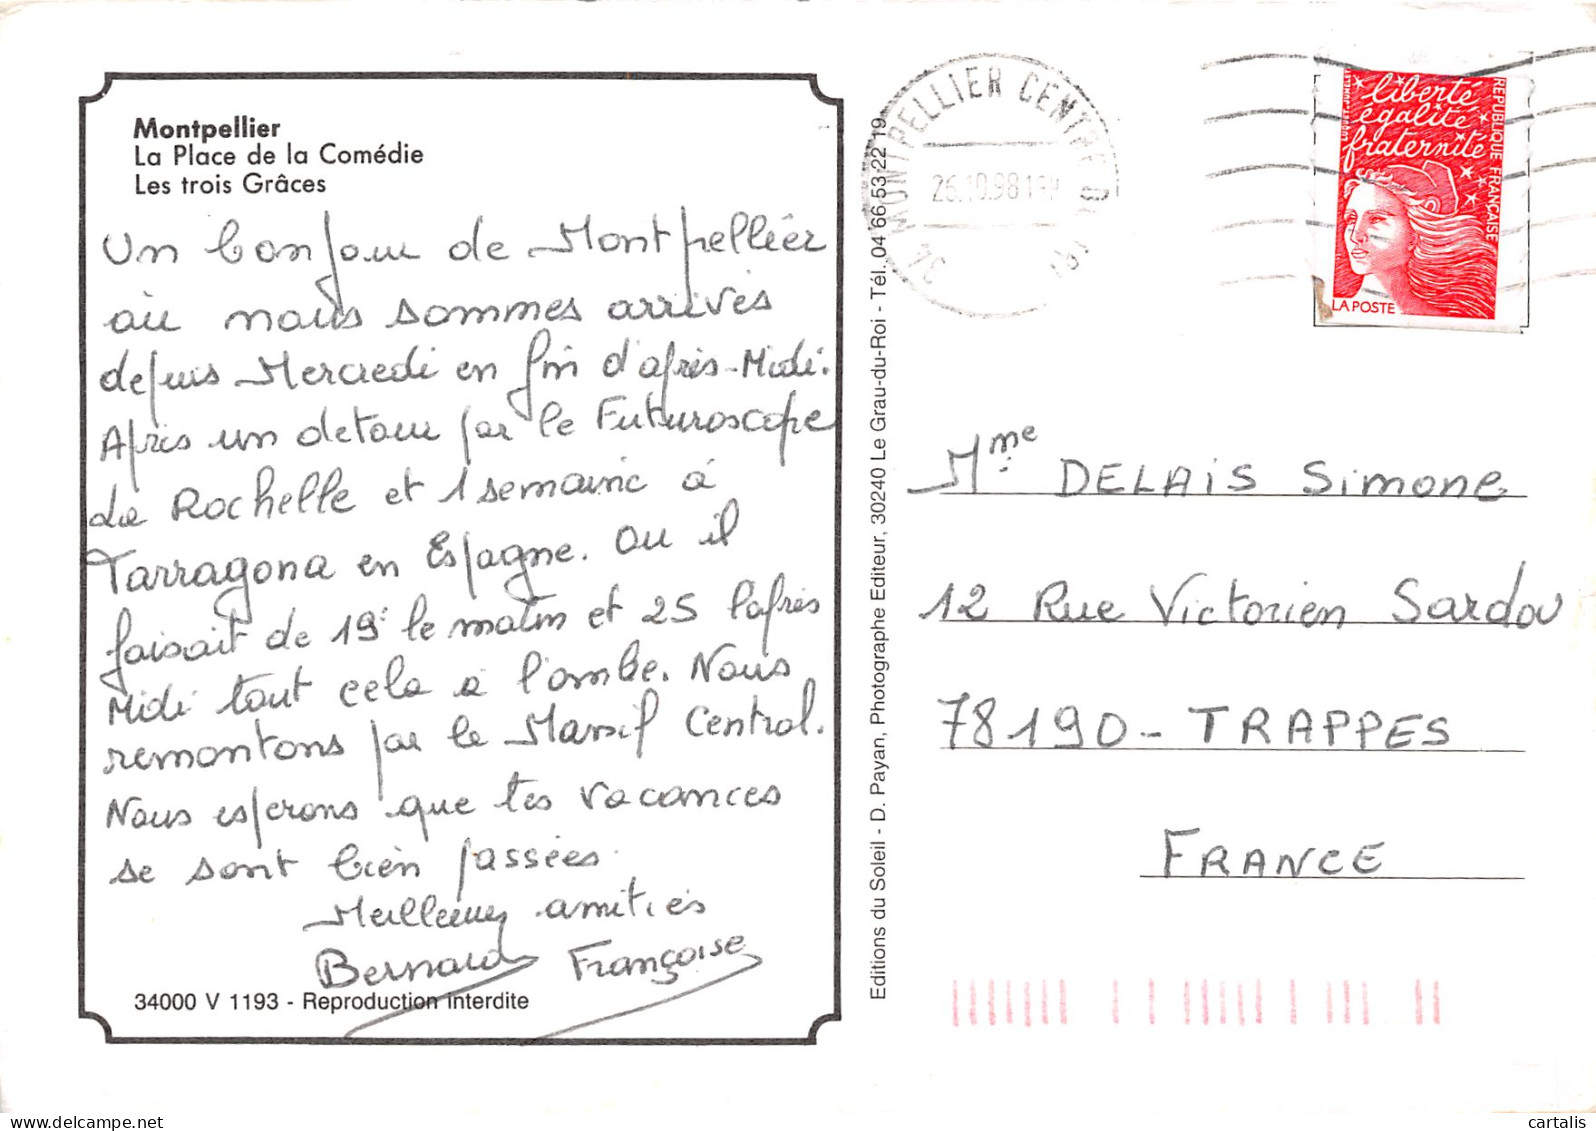 Montpellier
La Place de la Comédie
Les trois Grâces
Un bonjour de Montpellier
où nous sommes arrivés
depuis Mercredi en fin d'après-Midi.
Après un detour par le Futuroscope
La Rochelle et 1 semaine à
Tarragona en Espagne. Ou il
faisait de 19° le matin et 25 l'après
Midi tout cela a l'ombe. Nous
remontons par le Massif Central.
Nous esperons que tes vacances
se sont bien passées.
Meilleures amitiés
Bernard Françoise
34000 V 1193 - Reproduction interdite
Editions du Soleil - D. Payan, Photographe Editeur, 30240 Le Grau-du-Roi - Tél. 04 66 53 22 19
34 MONTPELLIER CENTRE
26.10.98
liberté
égalité
fraternité
RÉPUBLIQUE FRANÇAISE
LUQUET JUMELET
LA POSTE
Mme DELAIS Simone
12 Rue Victorien Sardou
78190 - TRAPPES
FRANCE
cartalis